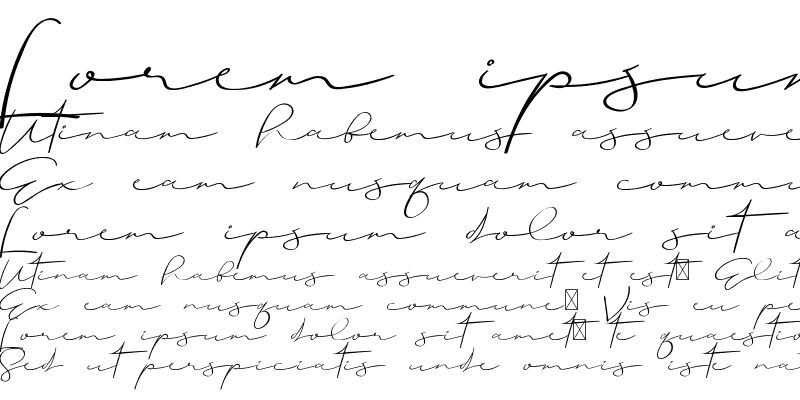 Lorem ipsum
Utinam habemus assueve
Ex eam nusquam commu
Lorem ipsum dolor sit a
Utinam habemus assueverit et est Elit
Ex eam nusquam commune Vis eu pe
Lorem ipsum dolor sit amet te quaestio
Sed ut perspiciatis unde omnis iste na